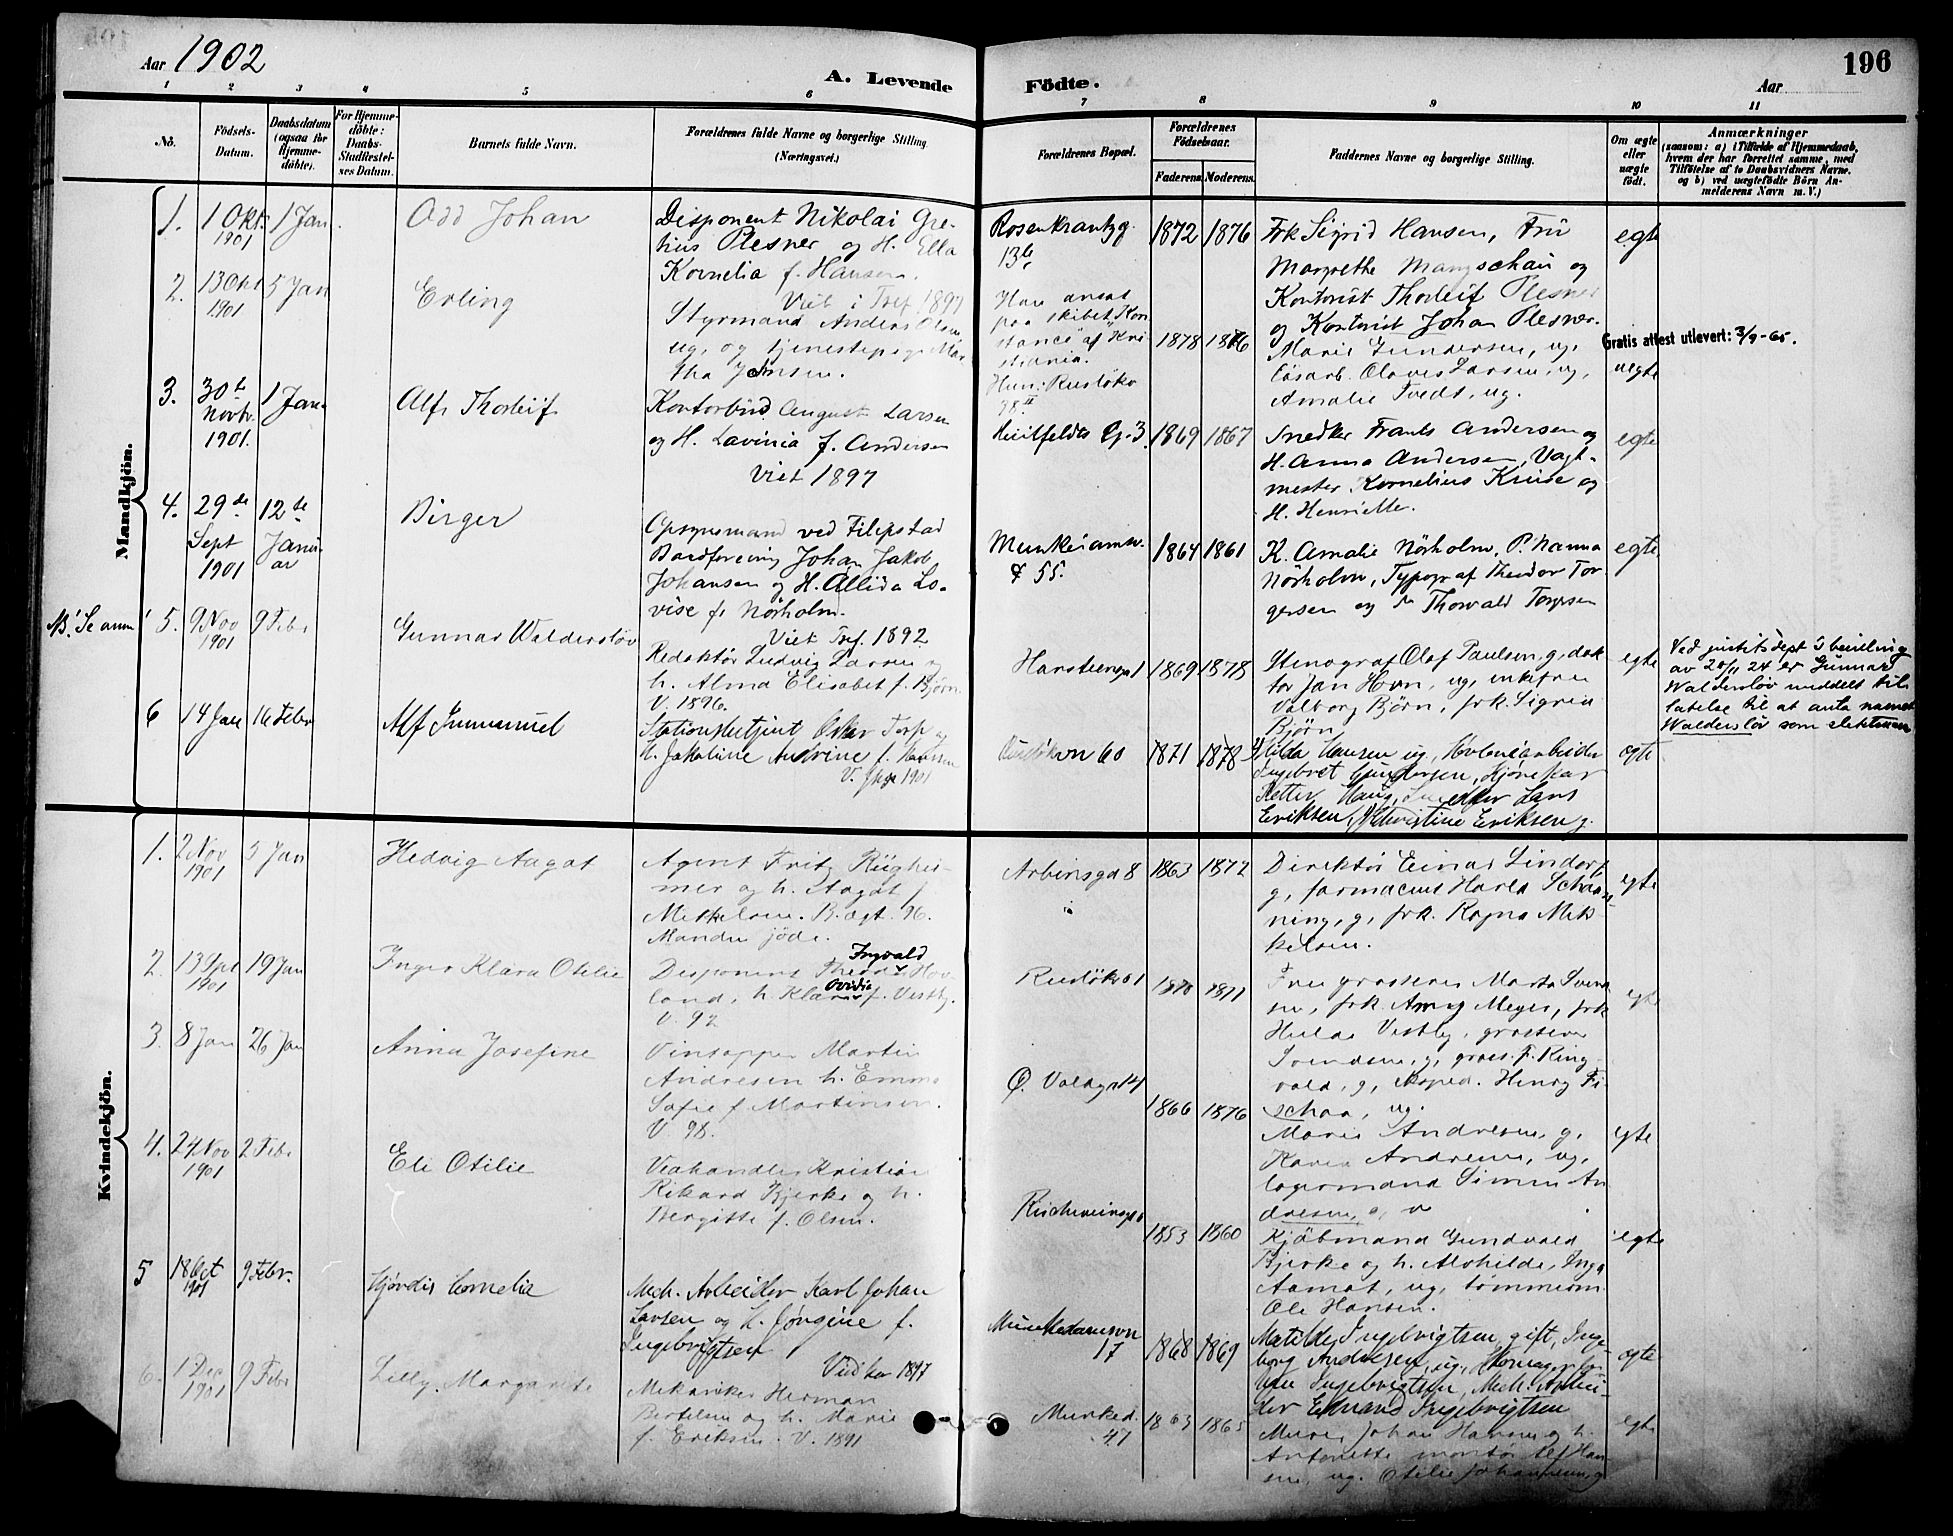 Aar 1902
A. Levende Födte.
Aar
196
1 2 3 4 5 6 7 8 9 10 11
No.
Födsels-Datum.
Daabsdatum (ogsaa for Hjemme-döbte).
For Hjemme-döbte: Daabs-Stadfæstel-ses Datum.
Barnets fulde Navn.
Forældrenes fulde Navne og borgerlige Stilling (Næringsvei.)
Forældrenes Bopæl.
Forældrenes Födselsaar.
Faderens Moderens.
Faddernes Navne og borgerlige Stilling.
Om ægte eller uægte födt.
Anmærkninger
(saasom: a) i Tilfælde af Hjemmedaab,
hvem der har forrettet samme, med
Tilföielse af to Daabsvidners Navne,
og b) ved uægtefödte Börn An-
melderens Navn m. V.)
Mandkjön.
1. 1 Okt. 1901
1 Jan.
Odd Johan
Disponent Nikolai Gre-
tius Plesner og H. Ella
Kornelia f. Hansen.
Viet i Tref. 1897
Rosenkrantzg.
13b
1872 1876
Frk Sigrid Hansen, Frü
Margrethe Mangschau og
Kontorist Thorleif Plesner
og Kontorist Johan Plesner.
egte
2. 13 Okt 1901
5 Jan
Erling
Styrmand Anders Olsen
ug. og tjenestepige Mar-
tha Jensen.
Han ansat
paa skibet "Kon
stance" af Kri
stiania.
Hun: Rusløkv
98 II
1878 1876
Marie Gundersen, ug.
løsarb. Olaves Larsen, ug,
Amalie Tvedt, ug.
uegte
Gratis attest utlevert: 3/9-65.
3. 30te Novbr. 1901.
1 Jan.
Alf Thorleif
Kontorbud August Larsen
og H. Lavinia f. Andersen
Viet 1897
Huitfeldts G. 3
1869 1867
Snedker Frants Andersen og
H. Anna Andersen, Vagt-
mester Kornelius Kruse og
H. Henriette.
egte
4. 29de Sept 1901
12te Janu-ar
Birger
Opsynsmand ved Filipstad
Bordforening Johan Jakob
Johansen og H. Allida Lo-
vise f. Nörholm.
Viet Tref. 1892
Munkedamsv.
55.
1864 1861
K. Amalie Nörholm, P. Nanna
Nörholm, Typograf Theodor Tor-
gersen og Thorvald Torgersen
egte
NB. Se anm!
5. 9 Nov 1901
9 Febr
Gunnar Walderslöv
Redaktör Ludvig Larsen og
h. Alma Elisabet f. Bjørn.
V. 1896.
Hansteensg 1
1869 1878
Stenograf Olaf Paulsen, g, dok
tor Jan Horn, ug, enkefru
Valborg Bjørn, frk. Sigrid
Bjørn
egte
Ved justitsdept's bevilling
av 20/11 24 er Gunnar
Walderslöv meddelt til
ladelse til at anta navnet
Walderslöv som slektsnavn
6 14 Jan 16 Febr
Alf Immanuel
Stationsbetjent Oskar Torp og
h. Jakobine Andrine f. Hansen
V. 1901
Rusløkvn 60
1871 1878
Hilda Hansen ug, Kolonialarbeider
Ingebret Gundersen,
Petter Haug, Snedker Lars
Eriksen, Christine Eriksen g.
egte
Kvindekjön.
1. 2 Nov 1901
5 Jan
Hedvig Aagot
Agent Fritz Rüghei-
mer og h. Aagot f
Mikkelsen. B. Ægt. 96.
Manden jöde.
Arbinsgd 8
1863 1872
Direktör Einar Lindorp
g, farmaceut Harld Schan
ning, g, frk. Ragna Mik
kelsen.
egte
2. 13 Spt 1901
19 Jan
Inger Klara Otilie
Ingvald
Disponent Theodor Hov-
Ovidia
land, h. Klara f. Vestby.
V. 92
Rusløkv 1
1870 1871
Fru grosserer Marta Svend
sen, frk. Anny Meyer, frk
Hulda Vestby, grosserer
Svendsen, g, gross. F. Ring-
vold, g, Henry Fi
scher, ug.
egte
3. 8 Jan 26 Jan
Anna Josefine
Vintapper Martin
Andresen h. Emma
Sofie f Martinsen.
V. 98.
Ø. Voldg. 14
1866 1876
Marie Andresen, g,
Karen Andresen, ug,
lagermand Simen An
dresen, g,
egte
4. 24 Nov 1901
2 Febr
Eli Otilie
Vedhandler Kristian
Rikard Bjerke og h.
Bergitte f. Olsen.
1853 1860
Kjöbmand Gundvald
Bjerke og h. Alvhilde, Inga
Aamot, ug, tømmerm.
Ole Hansen.
egte
5 18 Oct 1901
9 Febr.
Hjördis Cornelia
Mek. Arbeider Karl Johan
Larsen og H. Jørgine f.
Ingebrigtsen
Vied 1897
Munkedamsvn
17
1868 1869
Matilde Ingebrigtsen, gift, Inge
borg Andersen, ug,
Ingebrigtsen, Mek. Arbei-
der Edvard Ingebrigtsen
egte
6. 1 Dec 1901
9 Febr
Lilly Margarete
Mekaniker Herman
Bertelsen og h. Marie
f. Eriksen. V. 1891
Munked.
47
1863 1865
Murer Johan Hansen og h.
Antonette, montør Alf Han
sen, ug. Otilie Johannesen, g
egte